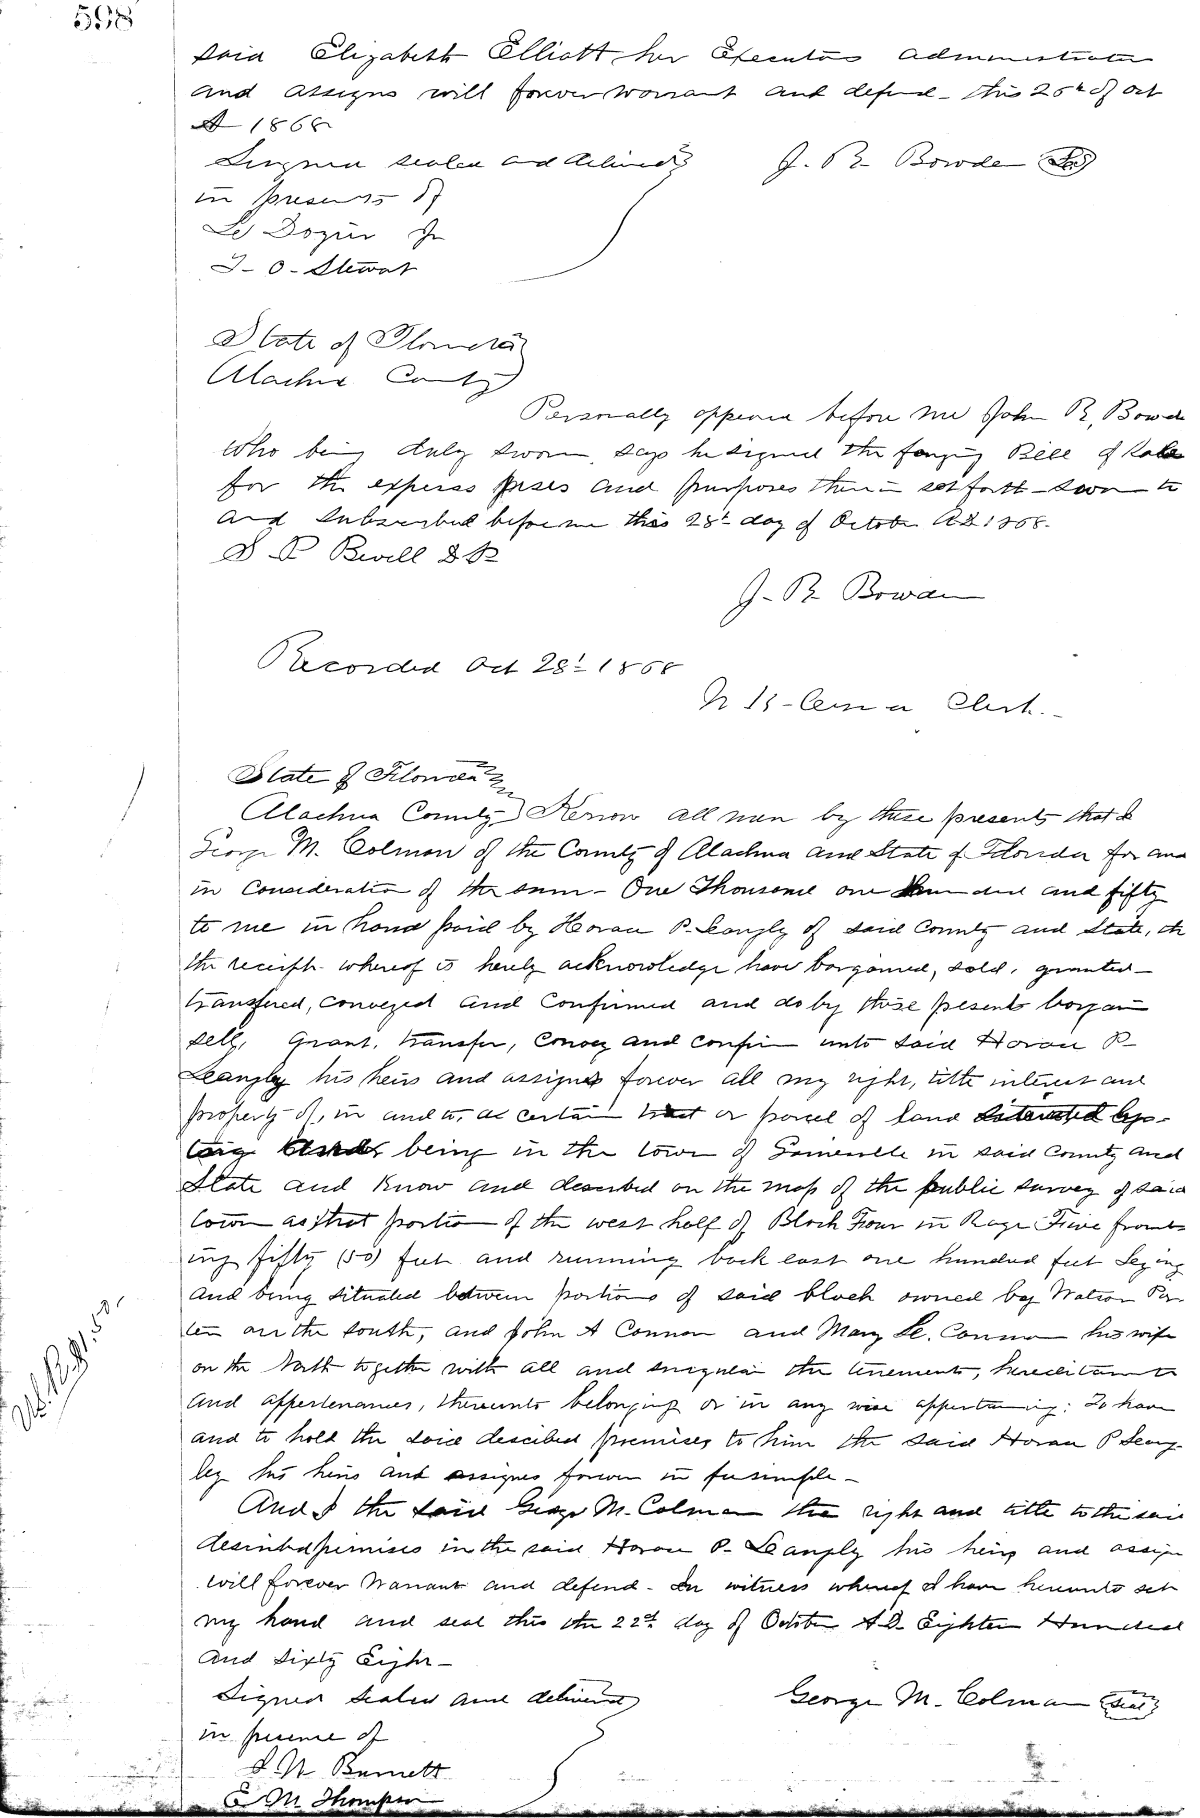 598
said Elizabeth Elliott her Executors administrators
and assigns will forever warrant and defend - this 26th of Oct
A 1868
Signed sealed and delivered J. R. Bowden
in presents of
L Dozier Jr
J - O - Stewart
State of Florida
Alachua County
Personally appeared before me John R. Bowde
Who being duly sworn, says he signed the foregoing Bill of Sale
for the express uses and purposes therein set forth - sworn to
and subscribed before me this 28th day of October A.D. 1868.
S P Bevill D R
J - R Bowden
Recorded Oct 28th 1868
Clerk.
State of Florida
Alachua County Know all men by these presents that I
George M. Colman of the County of Alachua and State of Florida for and
in Consideration of the sum - One Thousand one hundred and fifty
to me in hand paid by Horace P. Leangly of said County and State, th
the receipt whereof is hereby acknowledge have bargained, sold, granted -
transfered, conveyed and Confirmed and do by these presents bargain
sell, Grant, transfer, Convey and confirm unto said Horace P -
Leangley his heirs and assigns forever all my right, title interest and
property of, in and to, a certain tract or parcel of land situated ly-
being in the town of Gainesville in said County and
State and Know and described on the map of the public survey of said
town as that portion of the west half of Block Four in Range Five front-
ing fifty (50) feet and running back east one hundred feet Leying
and being situated between portions of said block owned by Watson Por-
ter on the south, and John A Connor and Mary E. Connor his wife
on the North together with all and singular the tenements, hereditaments
and appertenances, thereunto belonging or in any wise appertaining: To have
and to hold the said described premises to him the said Horace P Leang-
ley his heirs and assigns forever in fee simple -
And I the said George M. Colman the right and title to the said
described premises in the said Horace P. Leangly his heirs and assigns
will forever Warrant and defend - In witness whereof I have hereunto set
my hand and seal this the 22d day of October A.D. Eighteen Hundred
and Sixty Eight -
Signed sealed and delivered George M. Colman (seal)
in presence of
S. N Burnett
E M. Thompson